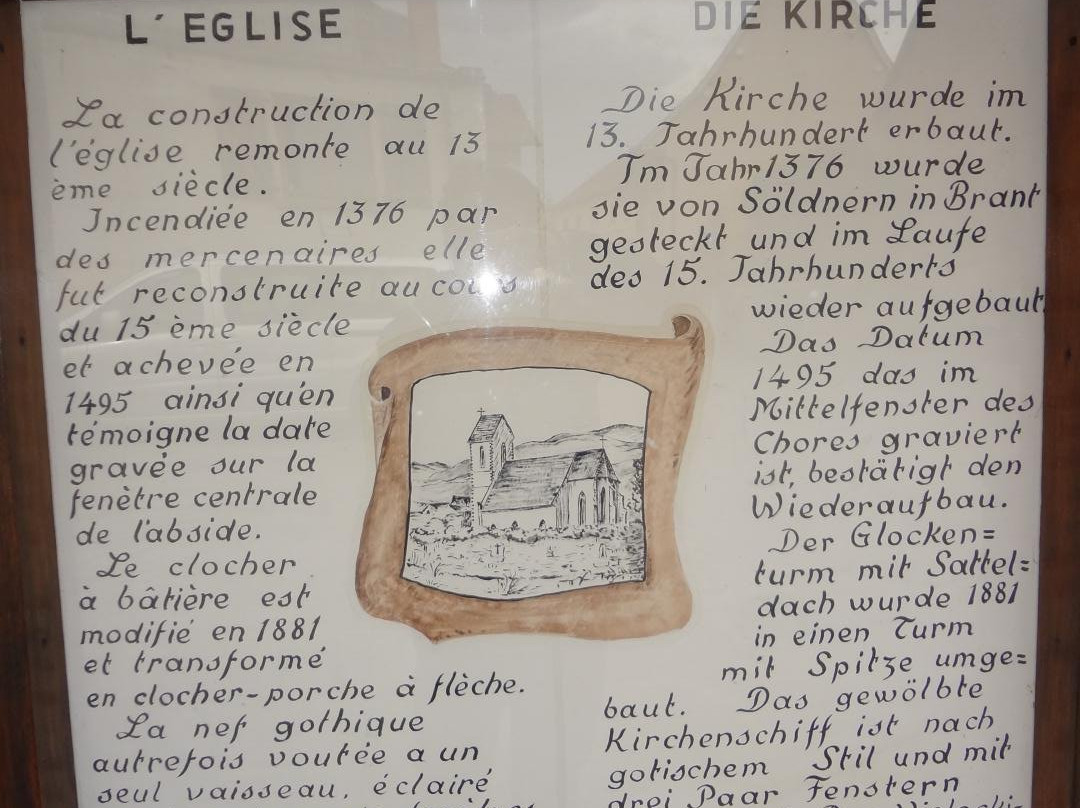 L'EGLISE
La construction de
l'église remonte au 13
ème siècle.
Incendiée en 1376 par
des mercenaires elle
fut reconstruite au cours
du 15 ème siècle
et achevée en
1495 ainsi qu'en
témoigne la date
gravée sur la
fenètre centrale
de l'abside.
Le clocher
à bâtière est
modifié en 1881
et transformé
en clocher-porche à flèche.
La nef gothique
autrefois voutée a un
seul vaisseau, éclairé
DIE KIRCHE
Die Kirche wurde im
13. Jahrhundert erbaut.
Im Jahr 1376 wurde
sie von Söldnern in Brant
gesteckt und im Laufe
des 15. Jahrhunderts
wieder aufgebaut
Das Datum
1495 das im
Mittelfenster des
Chores graviert
ist, bestätigt den
Wiederaufbau.
Der Glocken=
turm mit Sattel=
dach wurde 1881
in einen Turm
mit Spitze umge=
baut. Das gewölbte
Kirchenschiff ist nach
gotischem Stil und mit
drei Paar Fenstern